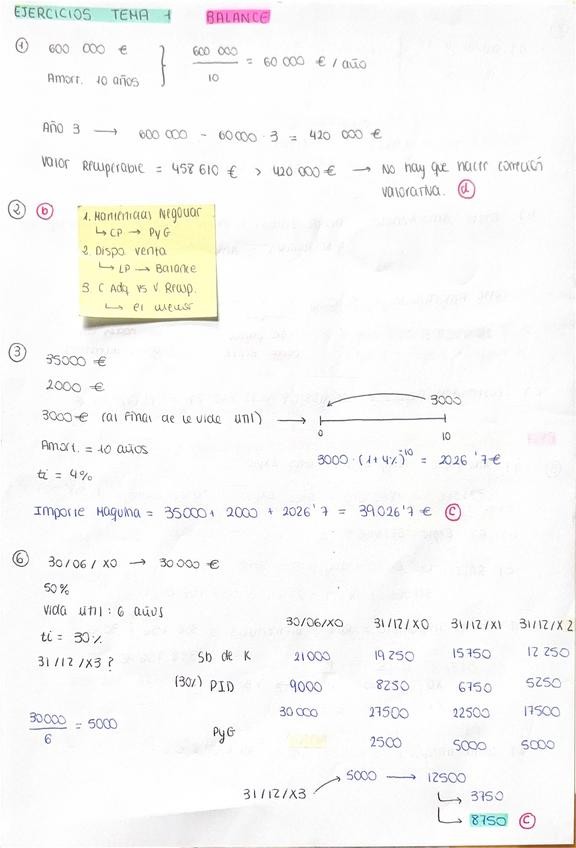 EJERCICIOS TEMA 1 BALANCE
① 600 000 €
Amort. 10 años
600 000 / 10 = 60 000 € / año
Año 3 → 600 000 - 60000 · 3 = 420 000 €
Valor Recuperable = 458 610 € > 420 000 € → No hay que hacer corrección
valorativa. ⓓ
② ⓑ
1. Mantenidas Negociar
↳ CP → PyG
2. Dispo. venta
↳ LP → Balance
3. C Adq. vs V Recup.
↳ el menor
③ 35000 €
2000 €
3000 € (al final de la vida útil) → 3000
0 10
Amort. = 10 años
3000 · (1+4%)⁻¹⁰ = 2026'7 €
ti = 4%
Importe Maquina = 35000 + 2000 + 2026'7 = 39026'7 € ⓒ
⑥ 30/06/X0 → 30000 €
50%
Vida útil: 6 años
ti = 30%
31/12/X3?
30000 / 6 = 5000
30/06/X0 31/12/X0 31/12/X1 31/12/X2
Sb de K 21000 19250 15750 12250
(30%) PID 9000 8250 6750 5250
30000 27500 22500 17500
PyG 2500 5000 5000
31/12/X3 → 5000 → 12500
↳ 3750
↳ 8750 ⓒ